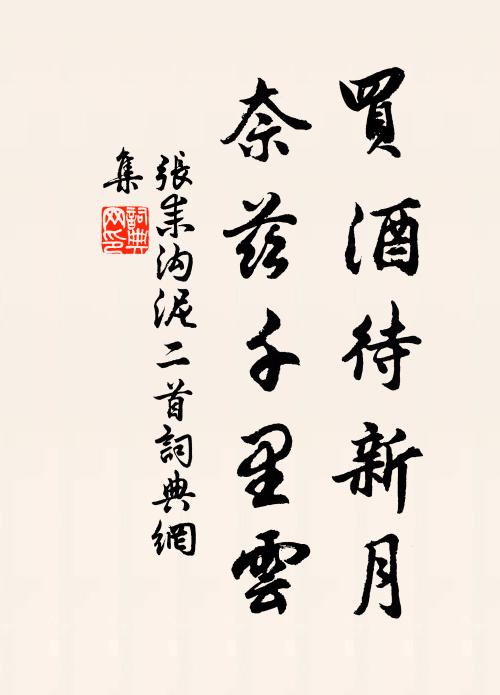 買酒待新月
奈茲千里雲
張耒沟泥二首詞典網
集
詞典
网印